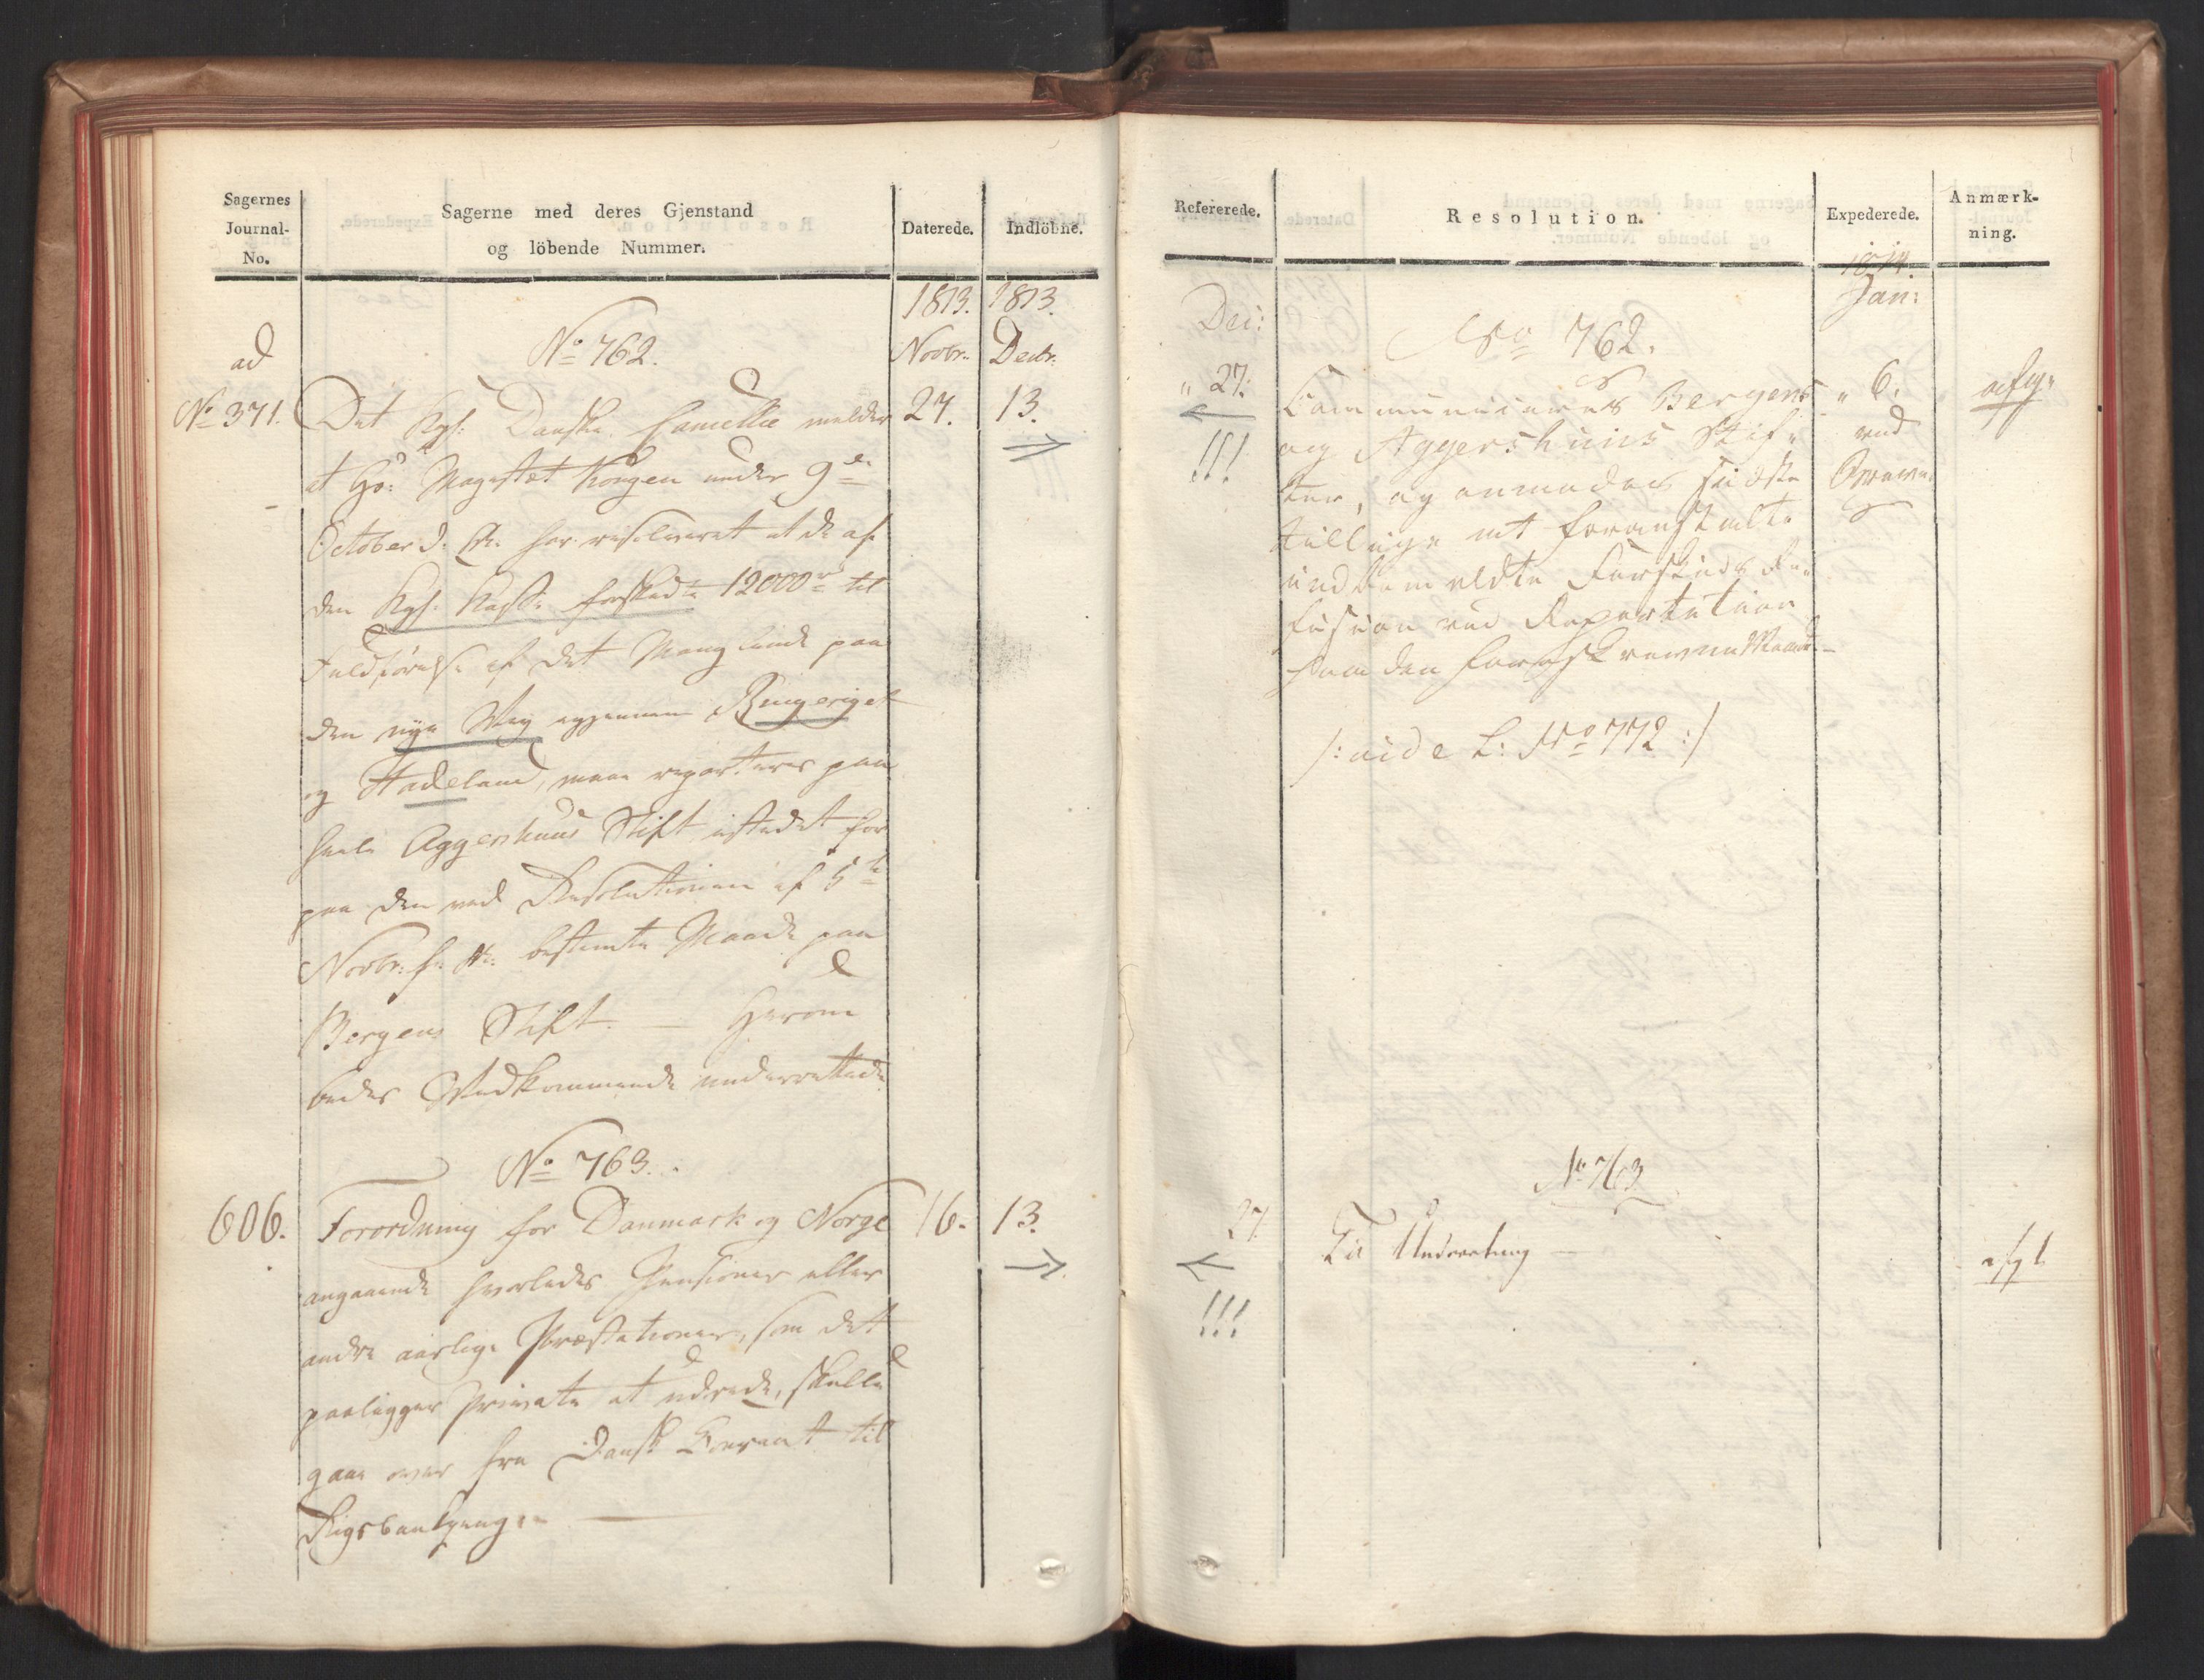 Sagernes
Journal-
No.
Sagerne med deres Gjenstand
og löbende Nummer.
Daterede.
Indlöbne.
1813.
1813.
ad
No 762.
Novbr:
Decbr:
No 371.
Det Kgl: Danske Cancellie melder
27.
13.
at Hs: Majestæt Kongen under 9de
October d. A. har resolveret at de af
den Kgl. Kasse forskudte 12000 rd til
Fuldførelse af det Manglende paa
den nye Vej igjennem Ringeriget
og Hadeland, maae reparteres paa
heele Aggershuus Stift istedet for
paa den ved Resolutionen af 5te
Novbr: f. A: bestemte Maade paa
Bergens Stift. — Herom
bedes Vedkommende underrettede.
No 763.
606.
Forordning for Danmark og Norge
16.
13.
angaaende hvorledes Pensioner eller
andre aarlige Præstationer, som det
paaligger Private at udrede, skulle
gaae over fra Dansk Courant til
Rigsbankpenge. —
Refererede.
Resolution.
Expederede.
Anmærk-
ning.
1814.
Jan:
Dec:
No 762.
" 27.
Communiceres Bergens
" 6.
afg.
!!!
og Aggershuus Stif-
ved
ter, og anmodes sidste
Breve
tillige at foranstalte
ommeldte Forskuds Re-
fusion ved Repartition
paa den foreskrevne Maade —
/: vide L: No 772 :/
No 763
27.
Til Underretning —
afgl
!!!